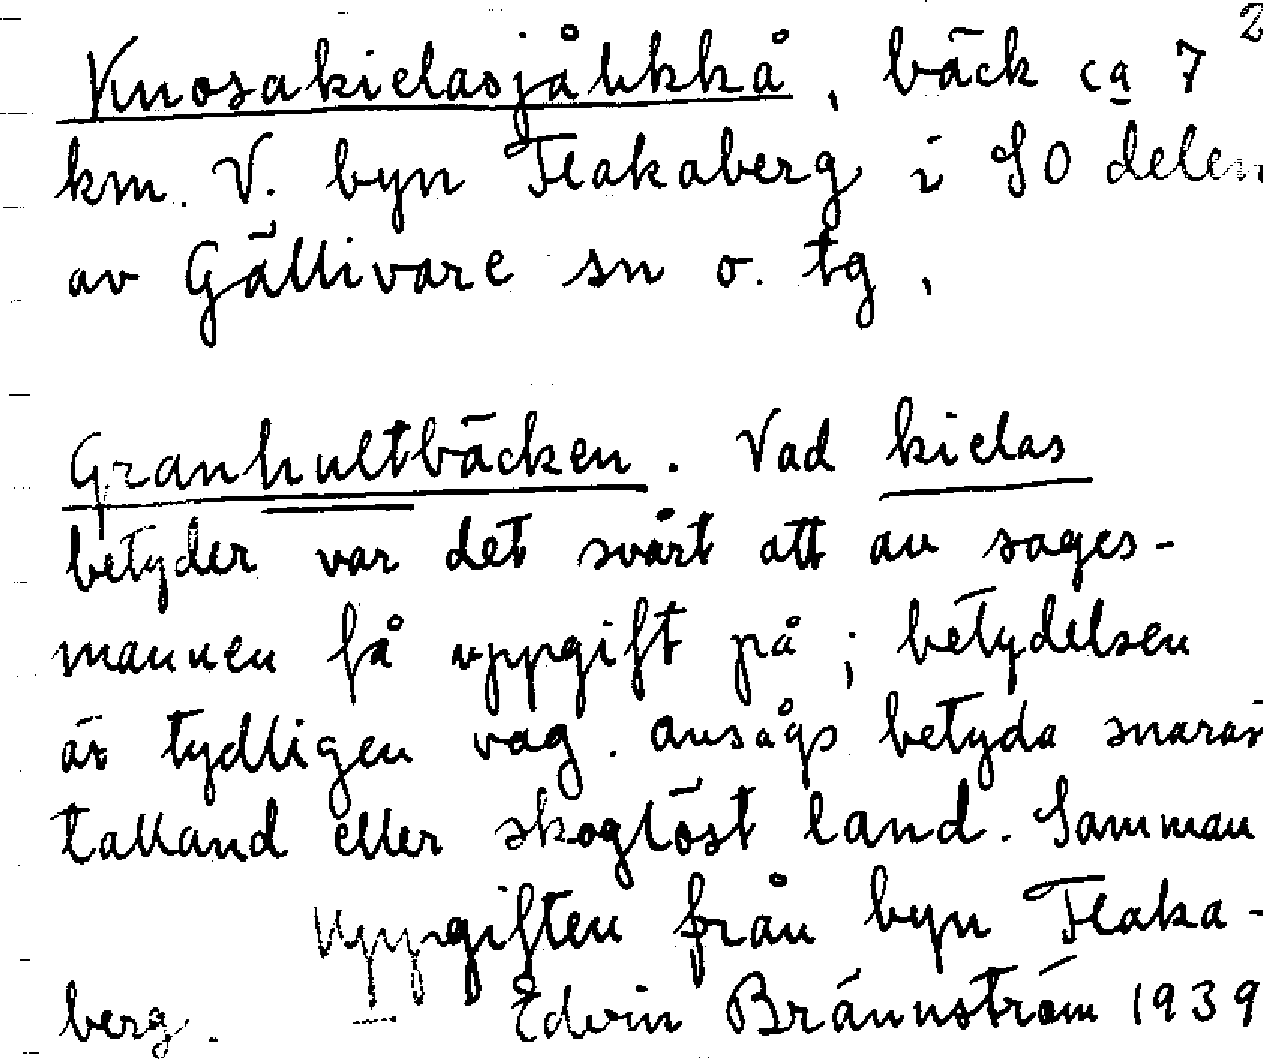 Kuosakielasjåhkkå, bäck ca 7 2
km. V. byn Flakaberg i SO delen
av Gällivare sn o. tg,
Granhultbäcken. Vad kielas
betyder var det svårt att av sages-
mannen få uppgift på; betydelsen
är tydligen vag. Ansågs betyda snarast
talland eller skoglöst land. Samman
Uppgiften från byn Flaka-
berg. Edvin Brännström 1939